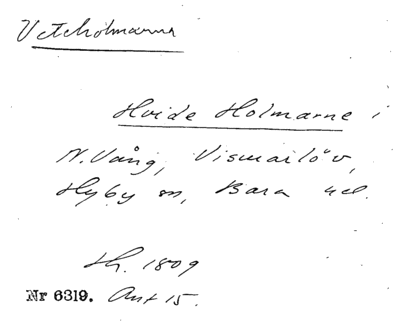 Veteholmarna
Hvide Holmarne i
N. Vång, Vismarlöv,
Hyby sn, Bara hd.
Sk. 1809
Nr 6319. Akt 15.